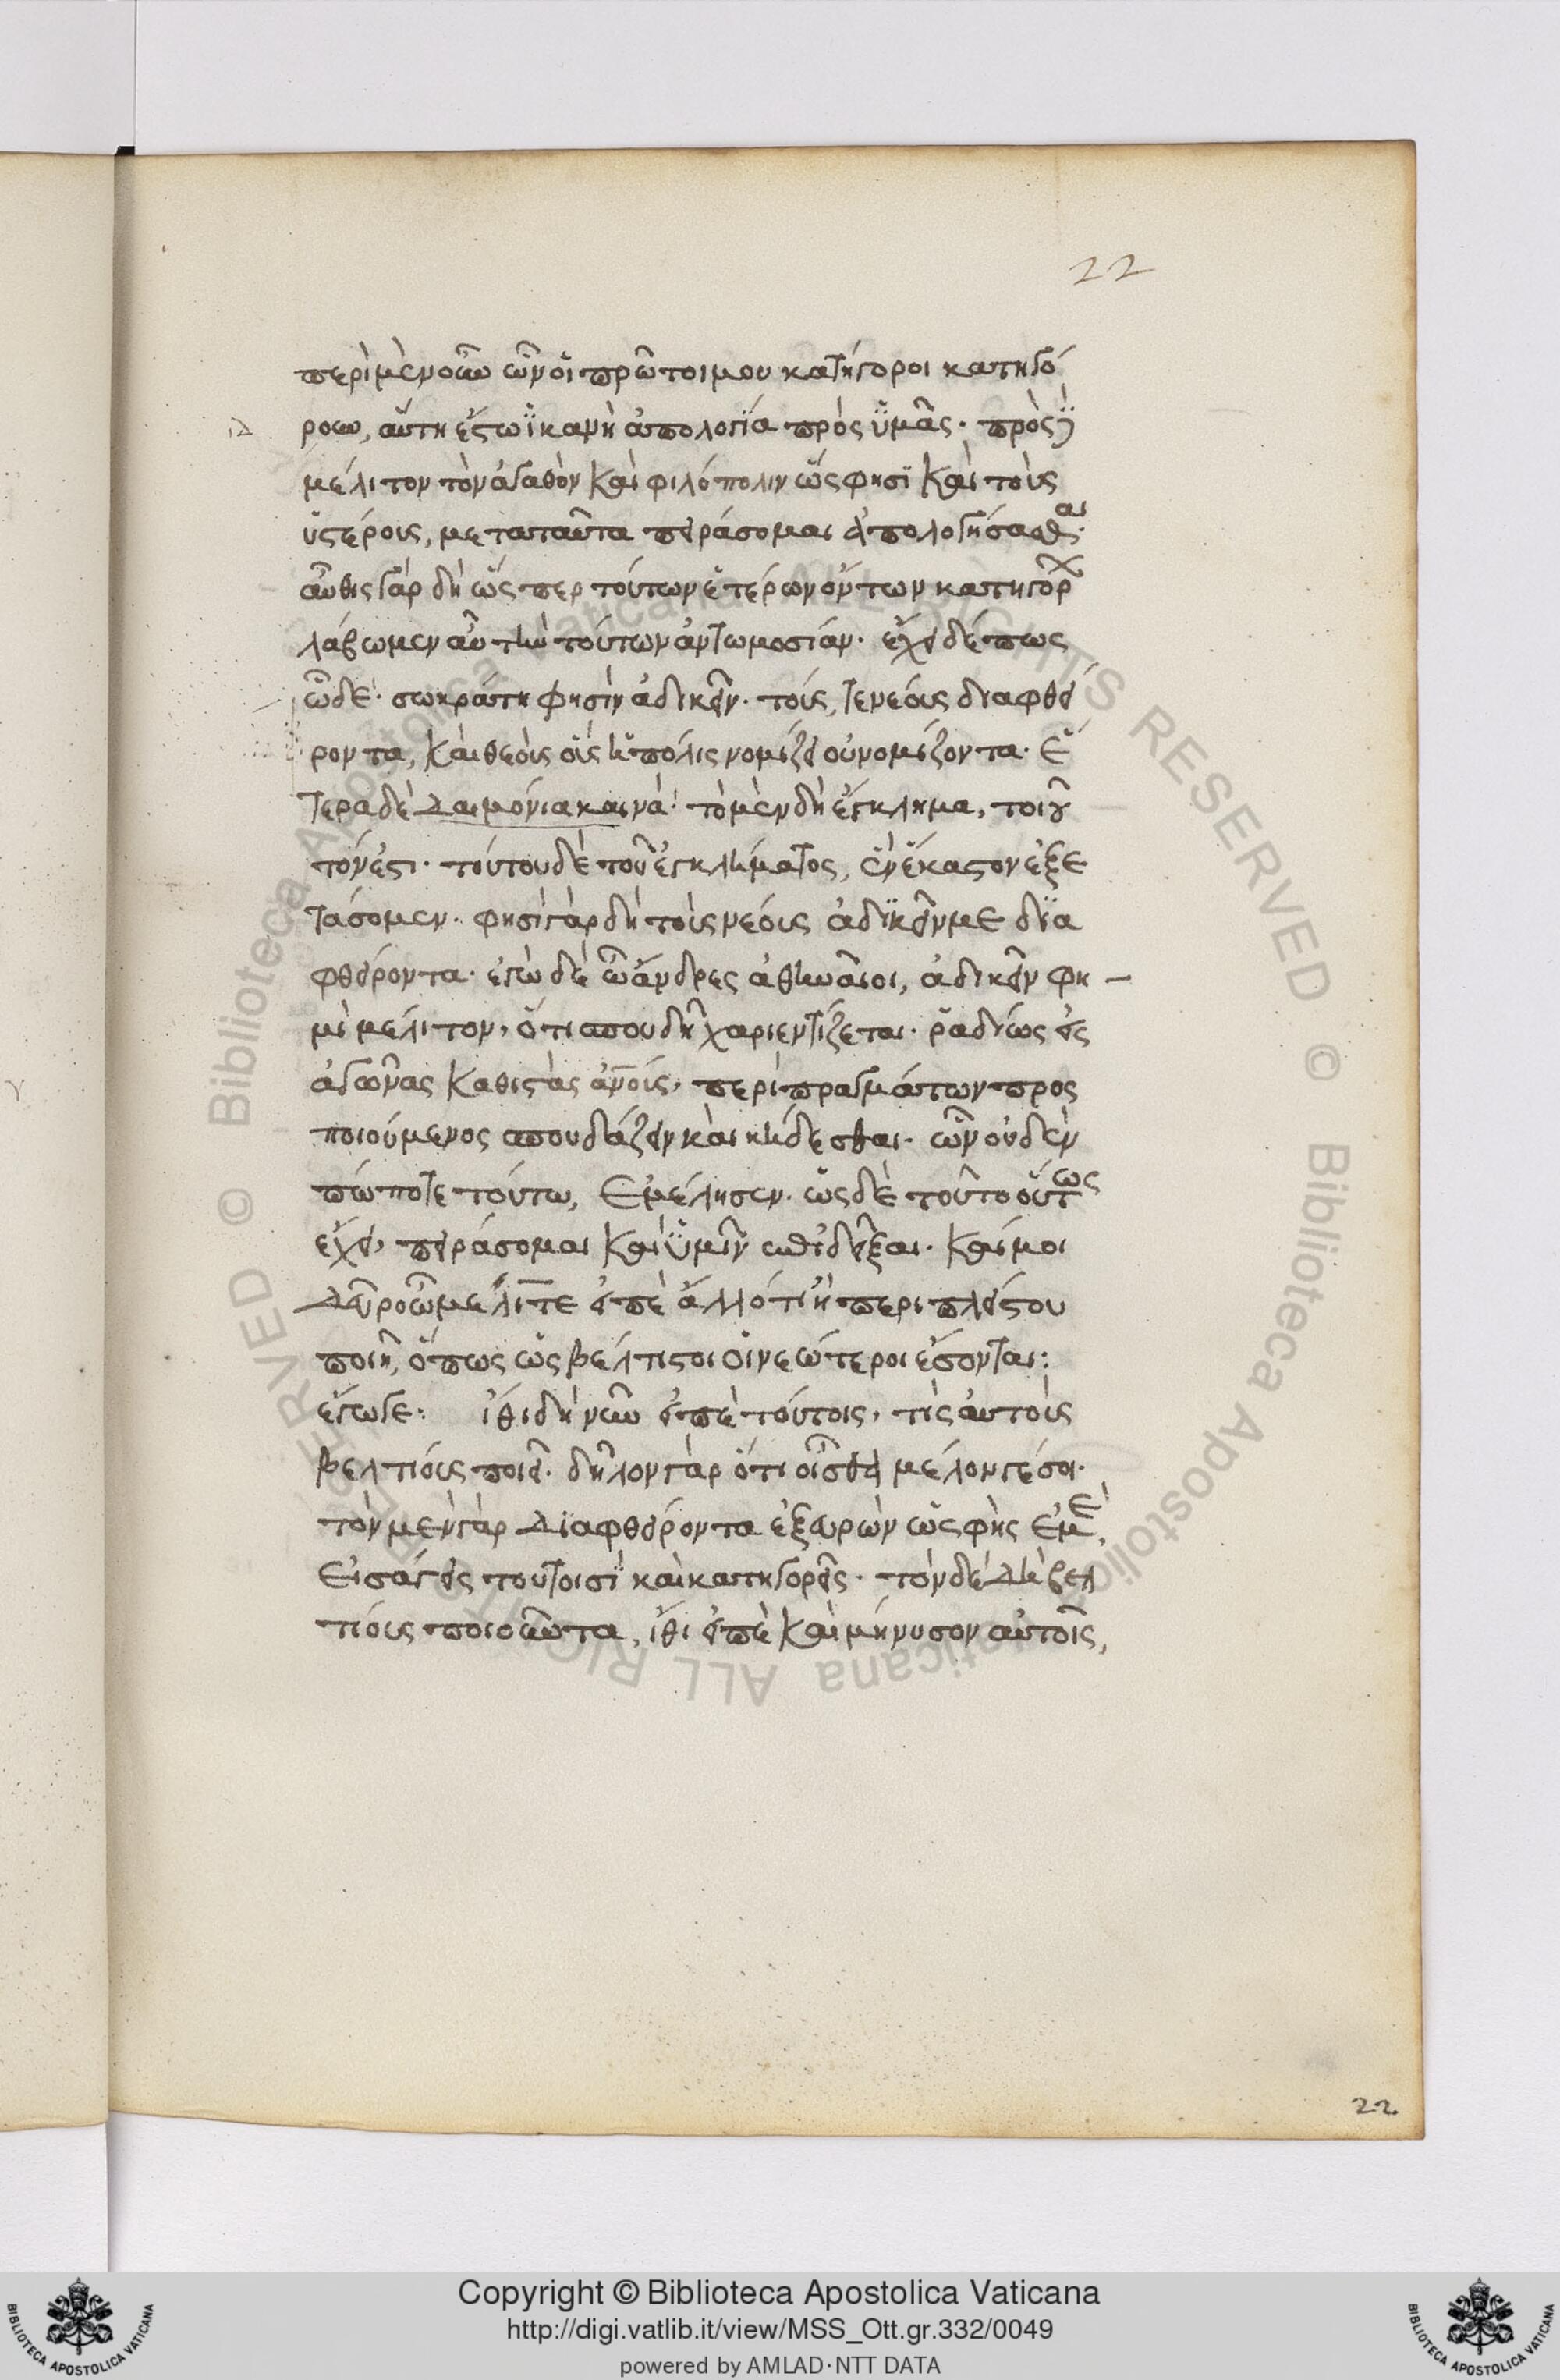 22
περὶ μὲν οὖν ὧν οἱ πρῶτοι μου κατήγοροι κατηγό
ρουν, αὕτη ἔστω ἱκανὴ ἀπολογία πρὸς ὑμᾶς· πρὸς δὲ
μέλιτον τὸν ἀγαθὸν καὶ φιλόπολιν ὥς φησι καὶ τοὺς
ὑστέρους, μετὰ ταῦτα πειράσομαι ἀπολογήσασθαι·
αὖθις γὰρ δὴ ὥσπερ τούτων ἑτέρων ὄντων κατηγόρων
λάβωμεν αὖ τὴν τούτων ἀντωμοσίαν· ἔχει δέ πως
ὧδε· σωκράτη φησὶν ἀδικεῖν· τούς τε νέους διαφθεί
ροντα, καὶ θεοὺς οὓς ἡ πόλις νομίζει οὐ νομίζοντα· ἕ
τερα δὲ δαιμόνια καινά· τὸ μὲν δὴ ἔγκλημα, τοιοῦ
τόν ἐστι· τούτου δὲ τοῦ ἐγκλήματος, ἓν ἕκαστον ἐξε
τάσομεν· φησὶ γὰρ δὴ τοὺς νέους ἀδικεῖν με δια
φθείροντα· ἐγὼ δὲ ὦ ἄνδρες ἀθηναῖοι, ἀδικεῖν φη
μὶ μέλιτον, ὅτι σπουδῇ χαριεντίζεται· ῥαδίως εἰς
ἀγῶνας καθιστὰς ἀνους, περὶ πραγμάτων προσ
ποιούμενος σπουδάζειν καὶ κήδεσθαι· ὧν οὐδὲν
πώποτε τούτω, ἐμέλησεν· ὡς δὲ τοῦτο οὕτως
ἔχει, πειράσομαι καὶ ὑμῖν ἐπιδεῖξαι· καί μοι
δεῦρο ὦ μέλιτε εἰπὲ ἄλλό τι ἢ περὶ πλείστου
ποιῇ, ὅπως ὡς βέλτιστοι οἱ νεώτεροι ἔσονται:
ἔγωγε: ἴθι δὴ νῦν εἰπὲ τούτοις, τίς αὐτοὺς
βελτίους ποιεῖ· δῆλον γὰρ ὅτι οἶσθα μέλον γέ σοι·
τὸν μὲν γὰρ διαφθείροντα ἐξευρὼν ὡς φὴς ἐμὲ,
εἰσάγεις τουτοισὶ καὶ κατηγορεῖς· τὸν δὲ δὴ βελ
τίους ποιοῦντα, ἴθι εἰπὲ καὶ μήνυσον αὐτοῖς,
22
Copyright © Biblioteca Apostolica Vaticana
http://digi.vatlib.it/view/MSS_Ott.gr.332/0049
powered by AMLAD·NTT DATA